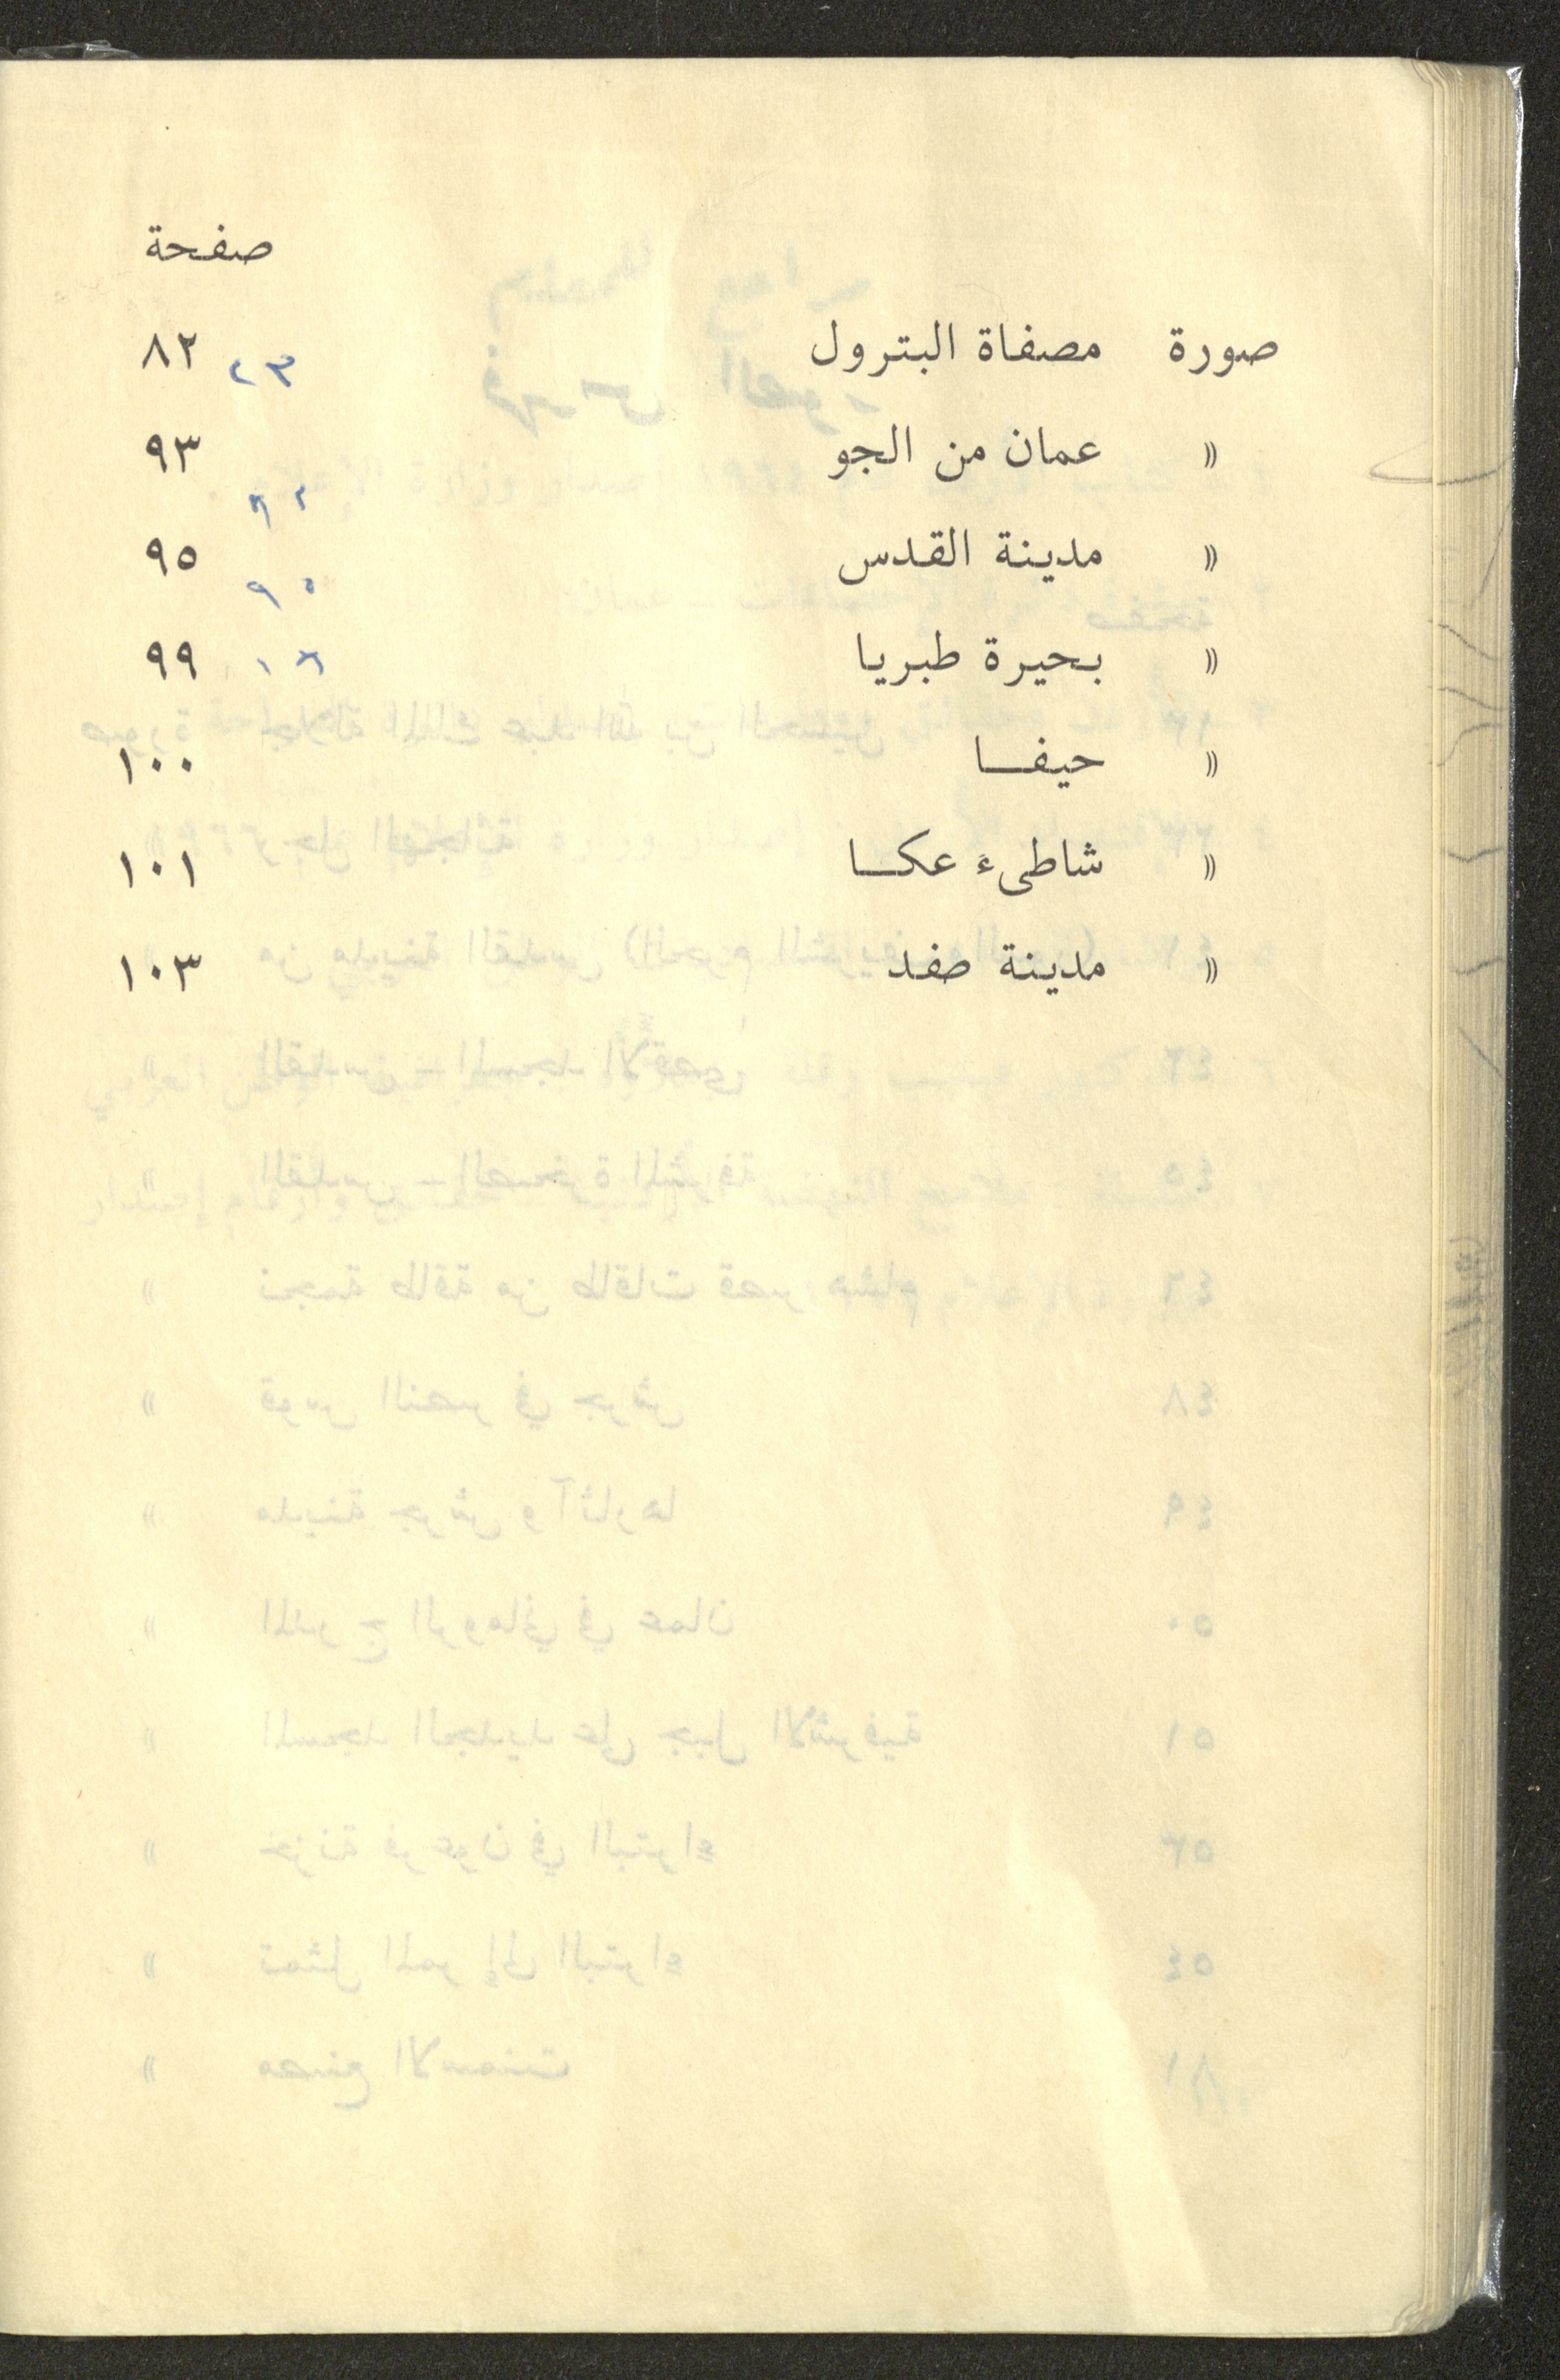 صفحة
صورة مصفاة البترول ٨٢
» عمان من الجو ٩٣
» مدينة القدس ٩٥
» بحيرة طبريا ٩٩
» حيفا ١٠٠
» شاطىء عكا ١٠١
» مدينة صفد ١٠٣